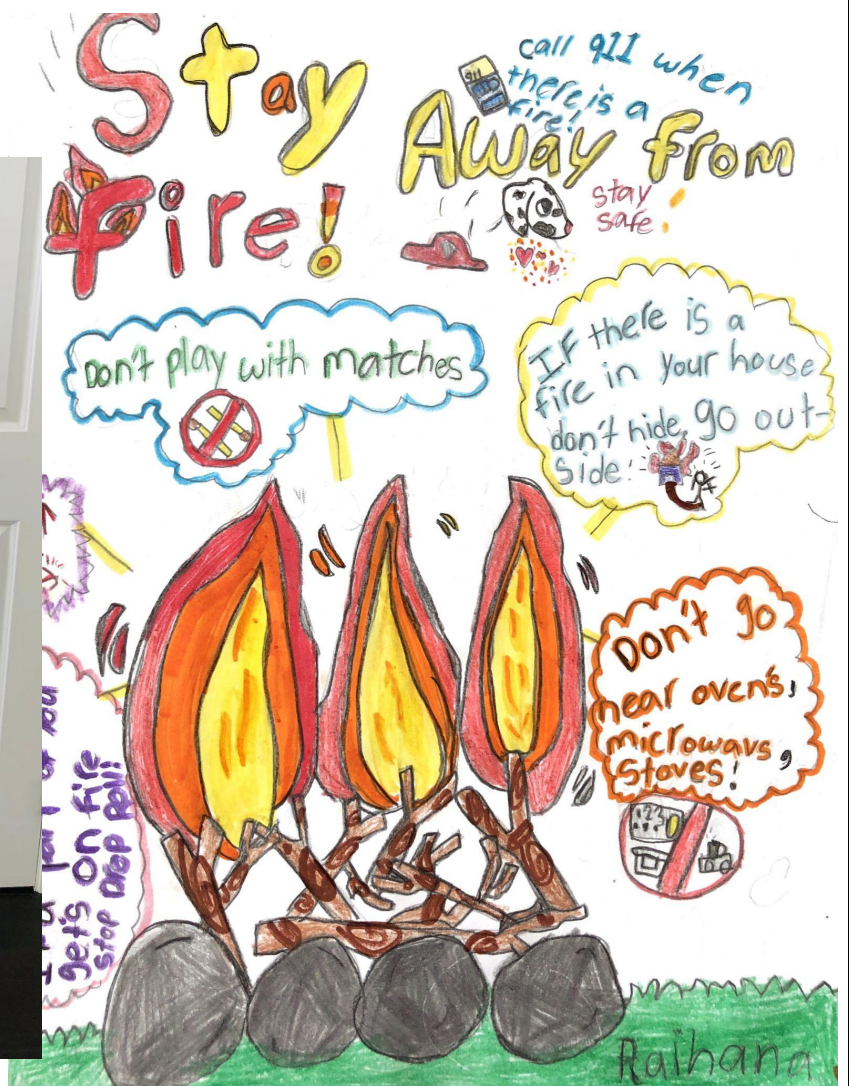 Stay
Away from
fire!
911
call 911 when
there is a
fire!
stay
safe!
Don't play with matches
IF there is a
fire in your house
don't hide, go out-
side!
Don't go
near oven's,
microwavs,
Stoves!
part of you
get's on fire
stop Drop Roll!
Raihana